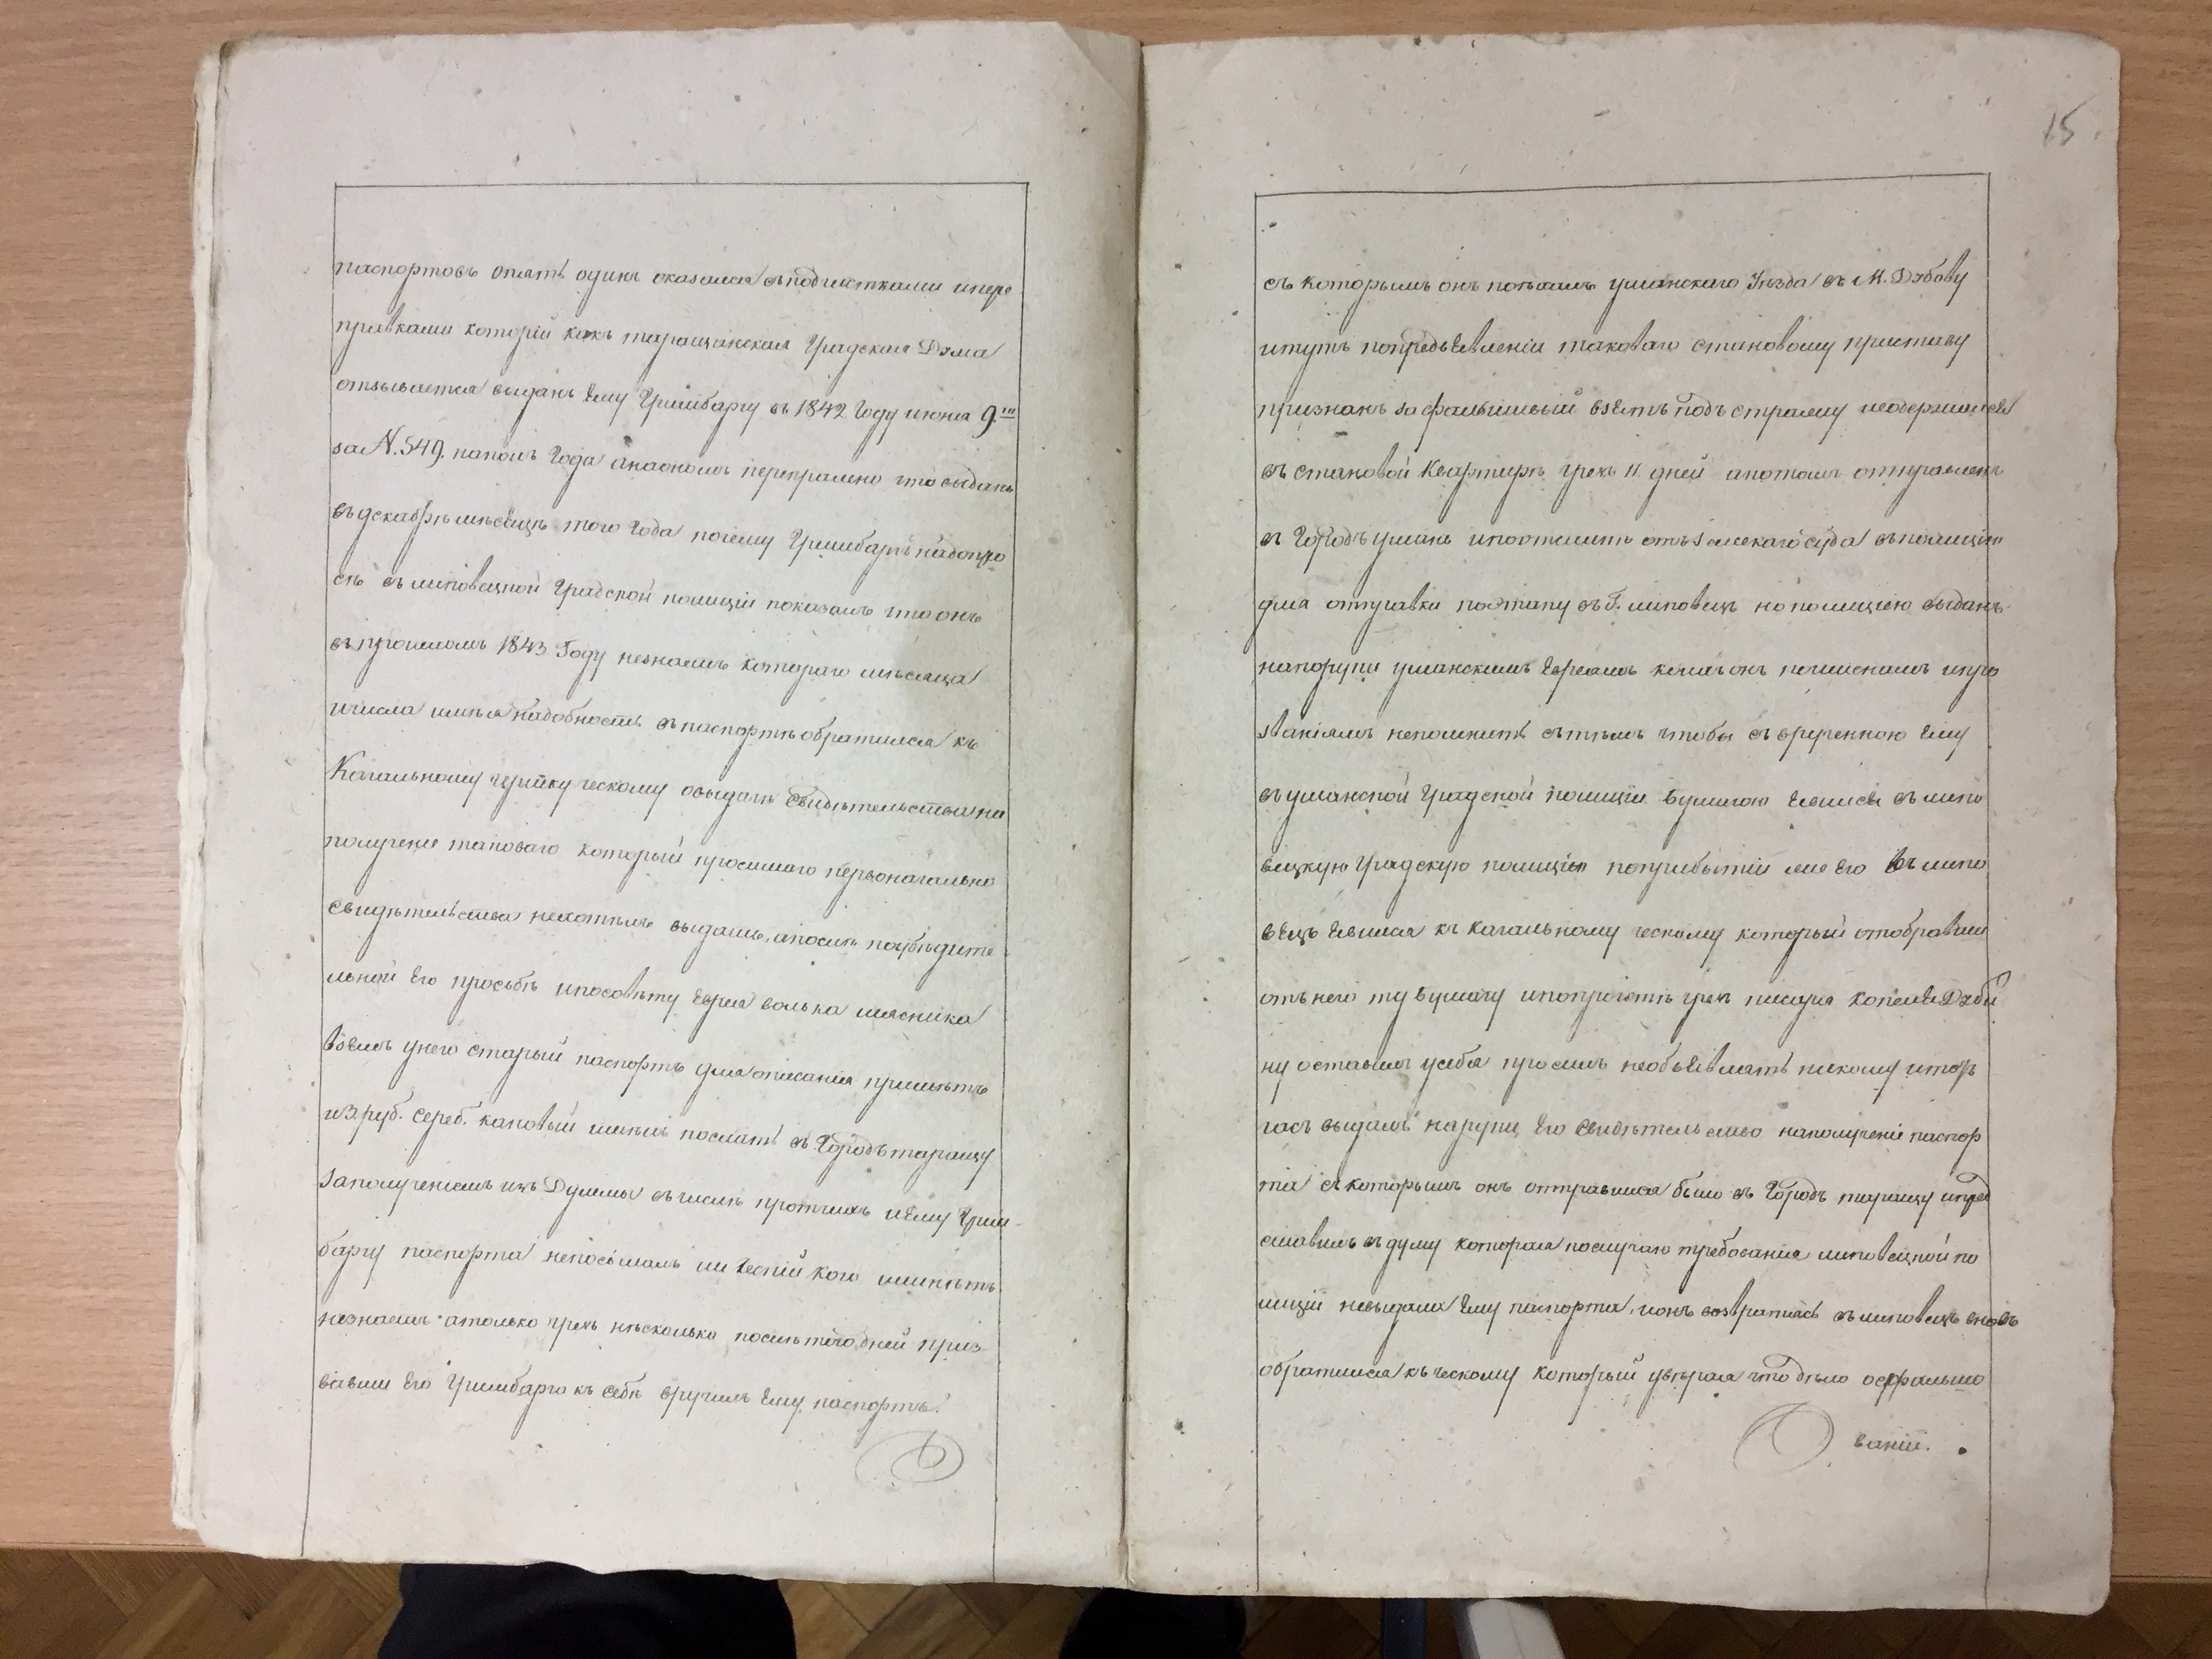 паспортовъ опять одинъ оказался съ подчистками и пере
правками которій какъ таращанская Градская Дума
отзывается выданъ Ему Гришбаргу въ 1842 Году июня 9го
за N. 549. на полъ Года а на ономъ переправлено что выданъ
въ декабрѣ мѣсяцѣ того Года почему Гришбаргъ на допро
сѣ въ липовецкой Градской полиціи показалъ что онъ
въ прошломъ 1843 Году незнаетъ котораго мѣсяца
и числа имѣя надобность въ паспортѣ обратился къ
Кагальному ческому о выдачѣ свидѣтельства на
полученіе таковаго который просимаго первоначально
свидѣтельства нехотѣлъ выдать, а послѣ по убѣдите
льной Его просьбѣ и посовѣту Еврея волька мясника
взялъ унего старый паспортъ для описанія примѣтъ
и 3 руб. сереб. каковый имѣлъ послать въ Городъ таращу
за полученіемъ изъ Думы въ числѣ протчихъ и Ему Гриш
баргу паспорта непосылалъ ли ческій кого или нѣтъ
незнаетъ а только чрезъ нѣсколько послѣ того дней приз
вавши Его Гришбарга къ себѣ вручилъ Ему паспортъ.
15
съ которымъ онъ поѣхалъ уманскаго Уѣзда въ М. Дубову
и тутъ попредъявленіи таковаго становому приставу
признанъ за фальшивый взятъ подъ стражу и содержался
въ становой квартирѣ чрезъ 11. дней а потомъ отправленъ
въ Городъ умань и поотсылкѣ отъ земскаго суда въ полицію
для отправки поэтапу въ Г. липовецъ но полициею выданъ
на поруки уманскимъ Евреямъ коихъ онъ по именамъ и про
званіямъ непомнитъ съ тѣмъ чтобы съ врученною Ему
въ уманской Градской полиціи бумагою явился въ липо
вецкую Градскую полицію поприбытіи же Его въ липо
вецъ явился къ кагальному ческому который отобравши
отъ него ту бумагу и попрочетѣ чрезъ писаря копеля Дуби
ну оставилъ усебя просилъ необъявлять никому и тотъ
часъ выдалъ на руки Его свидѣтельство на полученіе паспор
та съ которымъ онъ отправился было въ Городъ таращу и пред
ставилъ въ думу которая по случаю требованія липовецкой по
лиціи невыдала Ему паспорта, и онъ возвратясь въ липовецъ вновь
обратился къ ческому который увѣряя что дѣло о фальшо
ваніи.